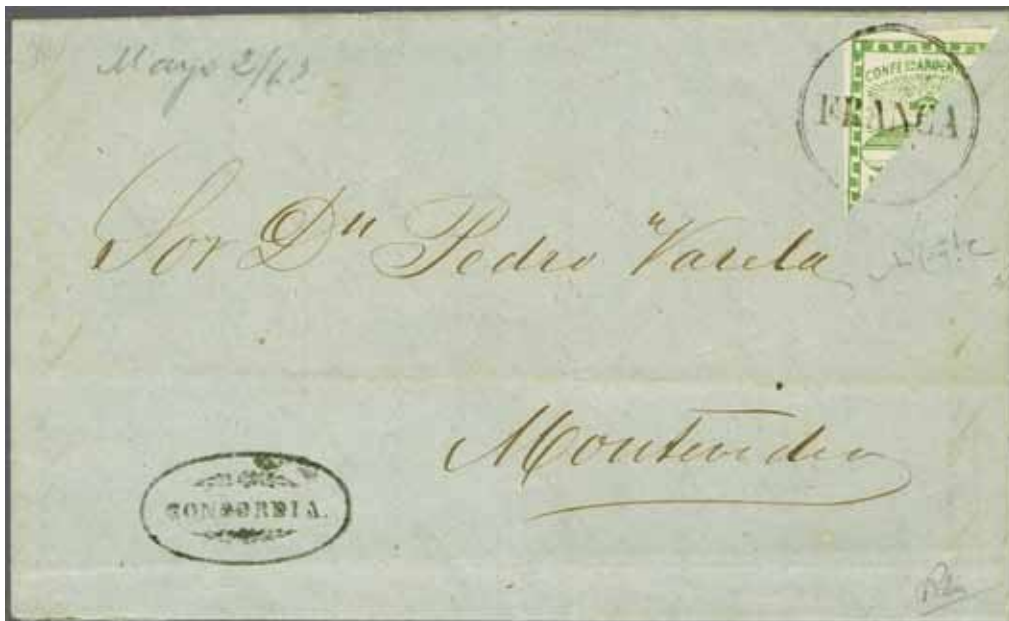 Mayo 2/63
CONFEON ARGENT
FRANCA
Sor Dn Pedro Varela
Montevideo
CONCORDIA.